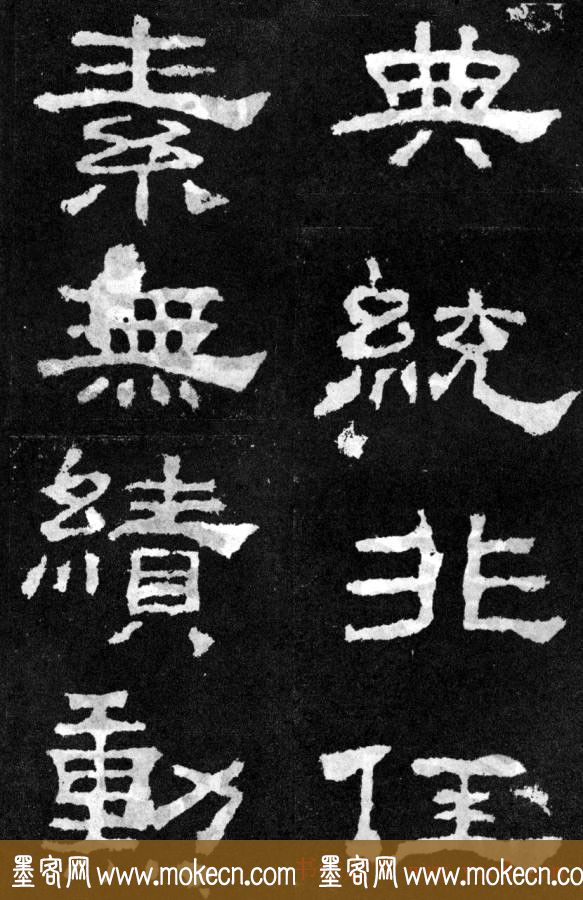 典統非任
素無績動
墨客网 www.mokecn.com 墨客网 www.mokecn.com